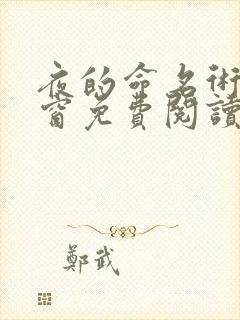 夜的命名術
窗免費閱讀
鄭武